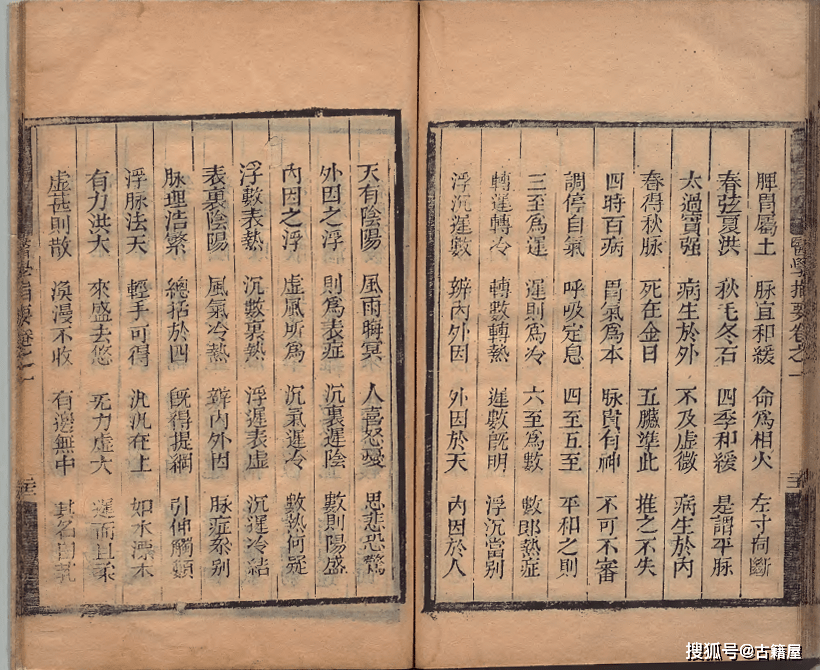 脾胃屬土 脉宜和緩 命為相火 左寸同斷
春弦夏洪 秋毛冬石 四季和緩 是謂平脉
太過實强 病生於外 不及虚微 病生於內
春得秋脉 死在金日 五臓準此 推之不失
四時百病 胃氣為本 脉貴有神 不可不審
調停自氣 呼吸定息 四至五至 平和之則
三至為遲 遲則為冷 六至為數 數即熱症
轉遲轉冷 轉數轉熱 遲數既明 浮沉當别
浮沉遲數 辨內外因 外因於天 內因於人
天有陰陽 風雨晦冥 人喜怒憂 思悲恐驚
外因之浮 則為表症 沉裏遲陰 數則陽盛
內因之浮 虚風所為 沉氣遲冷 數熱何疑
浮數表熱 沉數裏熱 浮遲表虚 沉遲冷結
表裏陰陽 風氣冷熱 辨內外因 脉症叅别
脉理浩繁 總括於四 既得提綱 引伸觸類
浮脉法天 輕手可得 汎汎在上 如水漂木
有力洪大 來盛去悠 无力虚大 遲而且柔
虚甚則散 渙漫不收 有邊無中 其名曰芤
醫學指要卷之一
醫學指要卷之一
搜狐号@古籍屋